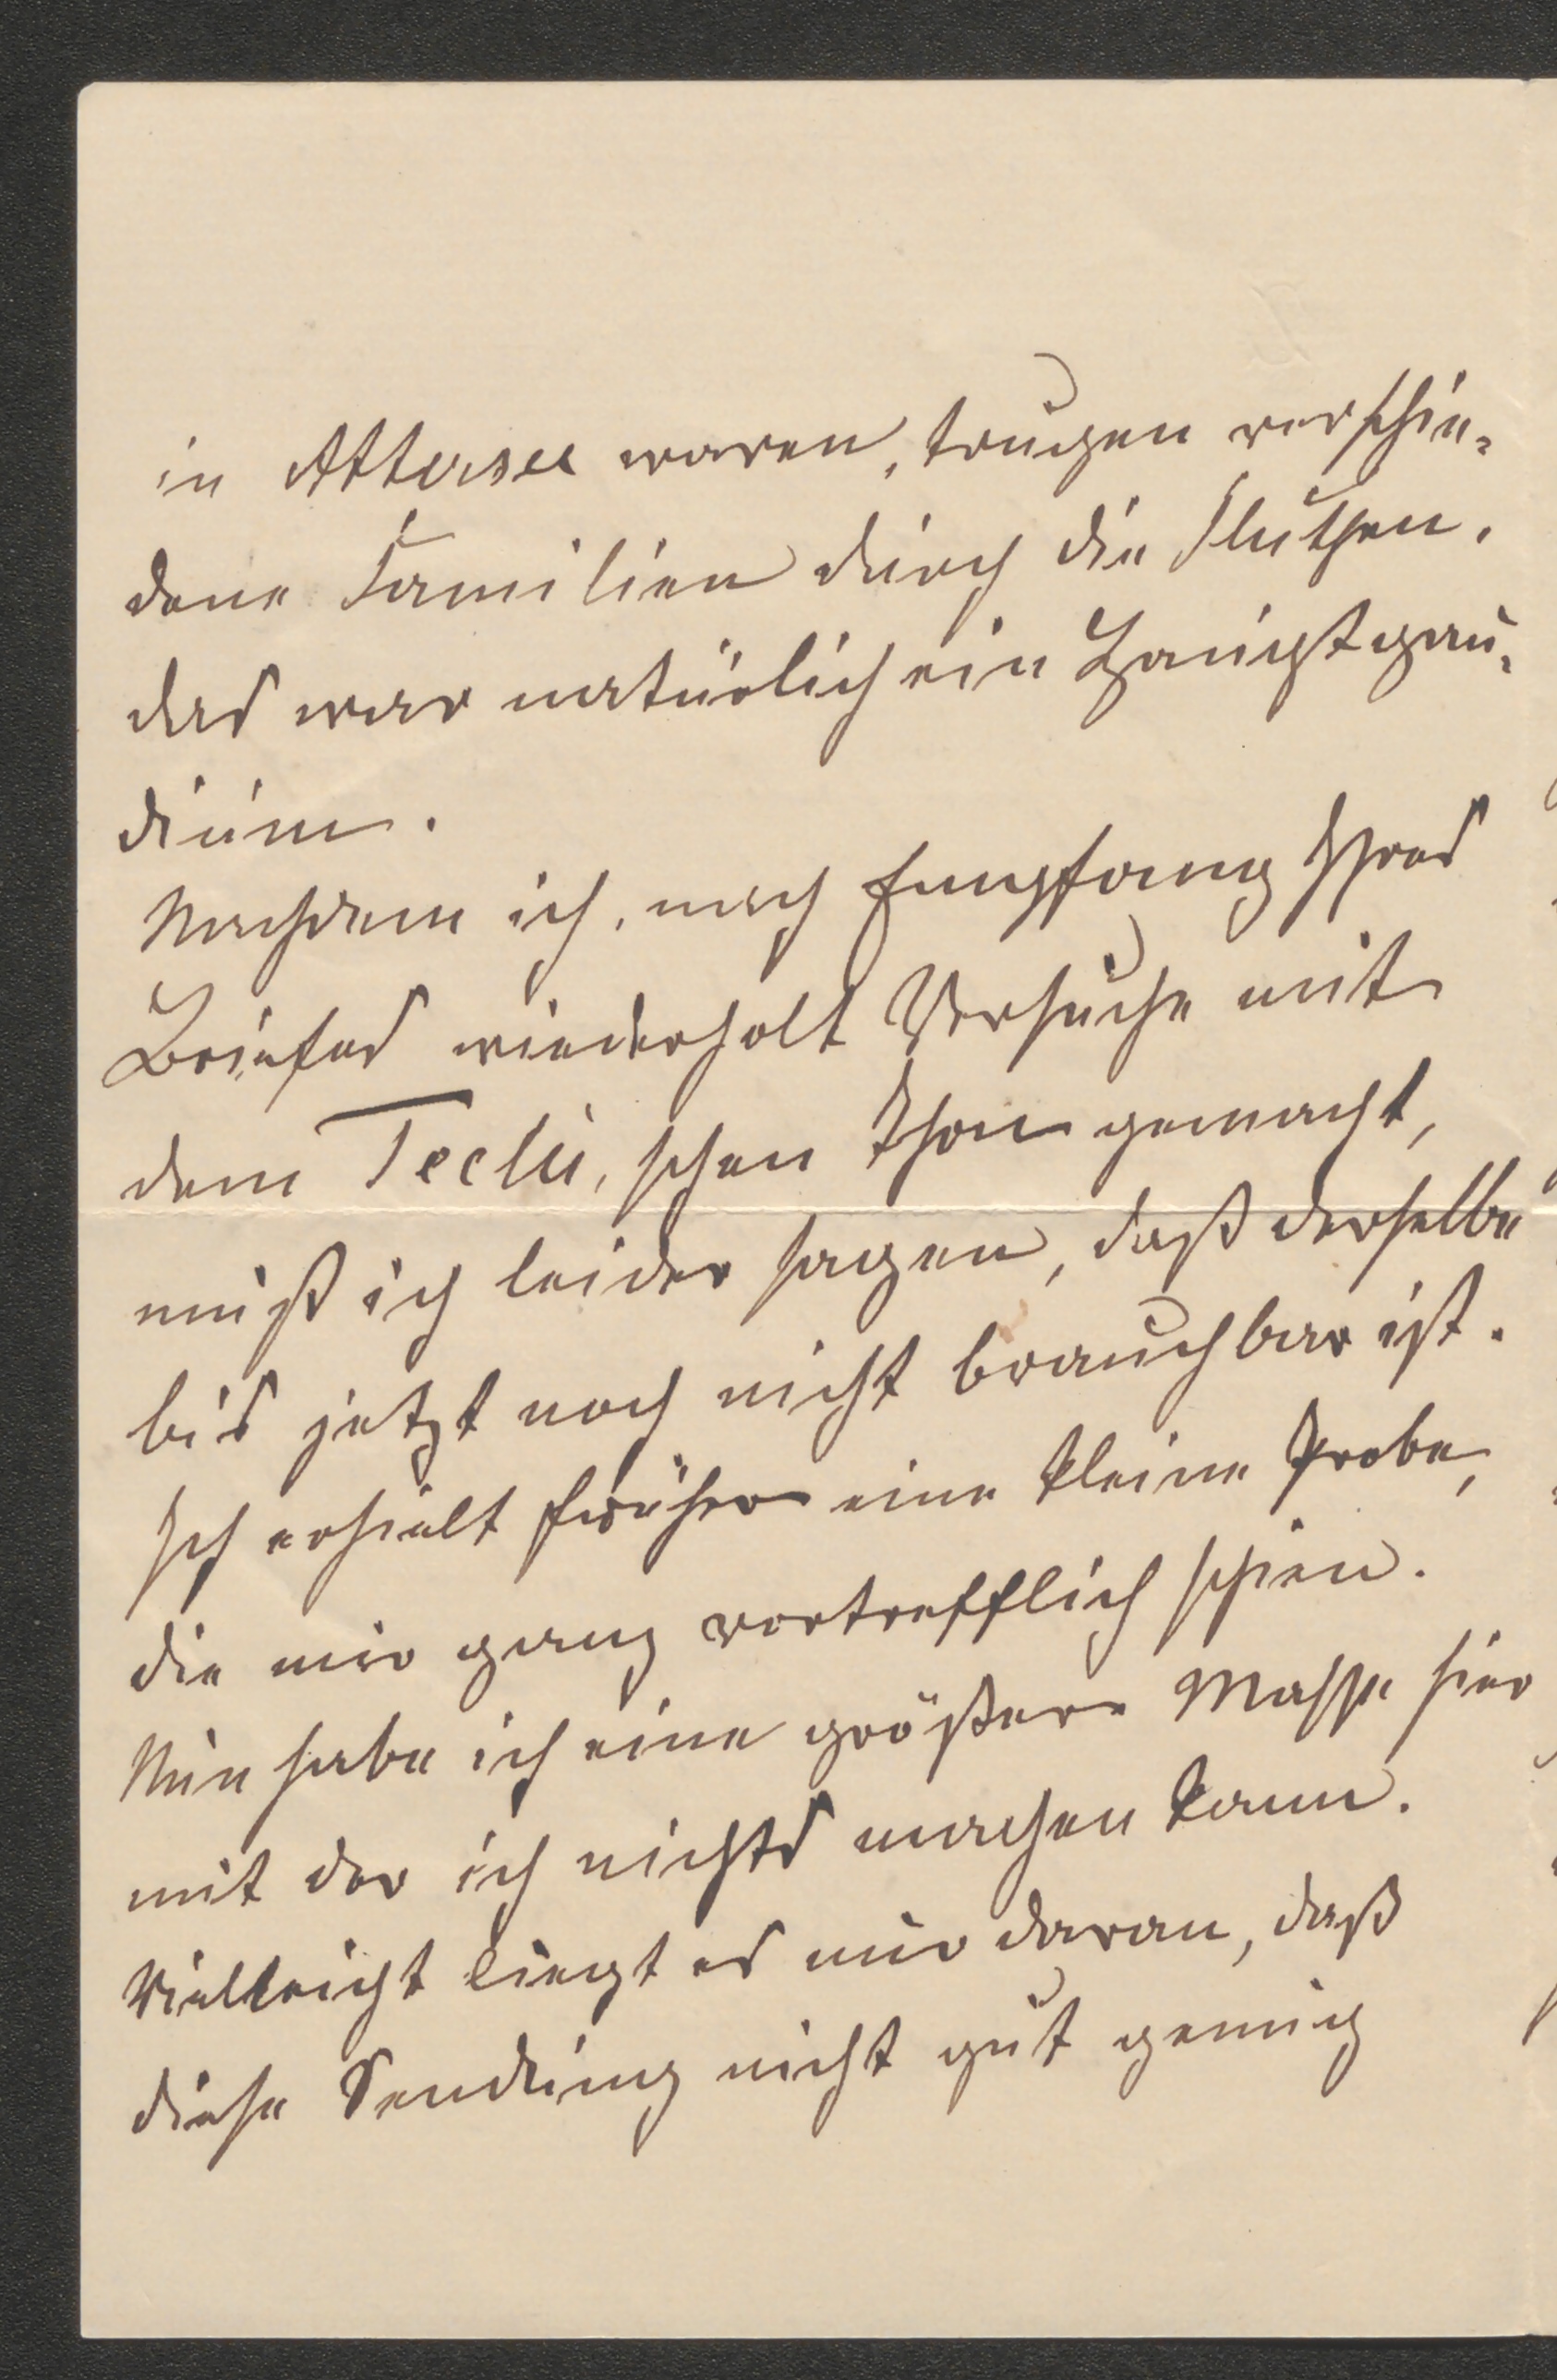 in Attersee waren, trugen verschie-
dene Familien durch die Fluthen.
das war natürlich ein Hauptgau-
dium.
Nachdem ich, nach Empfang Ihres
Briefes wiederholt Versuche mit
dem Teclu'schen Thon gemacht,
muß ich leider sagen, daß derselbe
bis jetzt noch nicht brauchbar ist.
Ich erhielt früher eine kleine Probe,
die mir ganz vortrefflich schien.
Nun habe ich eine größere Masse hier
mit der ich nichts machen kann.
Vielleicht liegt es nur daran, daß
diese Sendung nicht gut genug